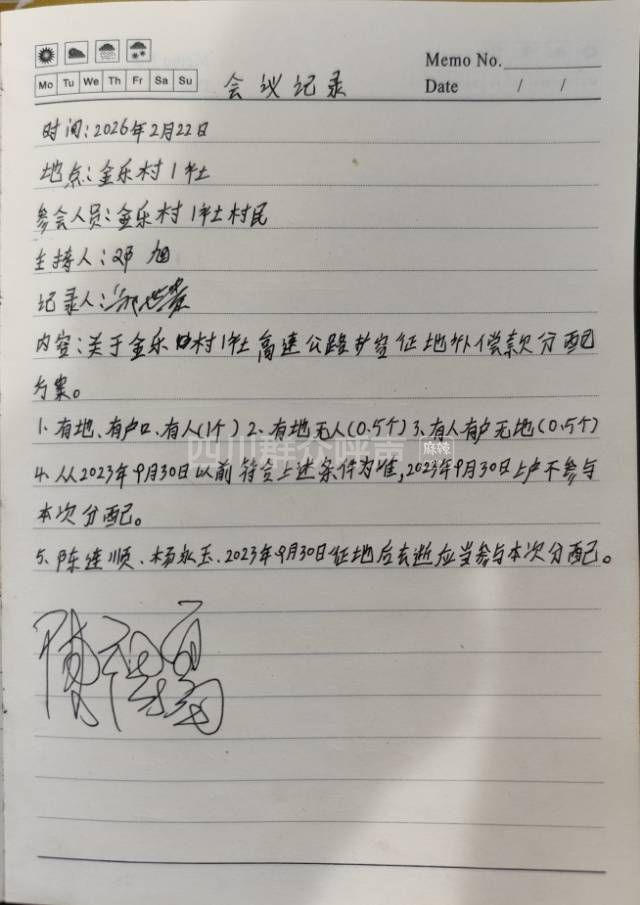 Mo Tu We Th Fr Sa Su
会议记录
Memo No.
Date / /
时间:2026年2月22日
地点:金乐村1社
参会人员:金乐村1社村民
主持人:邓旭
记录人:
内容:关于金乐村1社高速公路扩宽征地补偿款分配
方案。
1、有地、有户口、有人(1个) 2、有地无人(0.5个) 3、有人有户无地(0.5个)
四川群众呼声 麻辣
4、从2023年9月30日以前符合上述条件为准,2023年9月30日上户不参与
本次分配。
5、陈连顺、杨永玉、2023年9月30日征地后去逝应当参与本次分配。